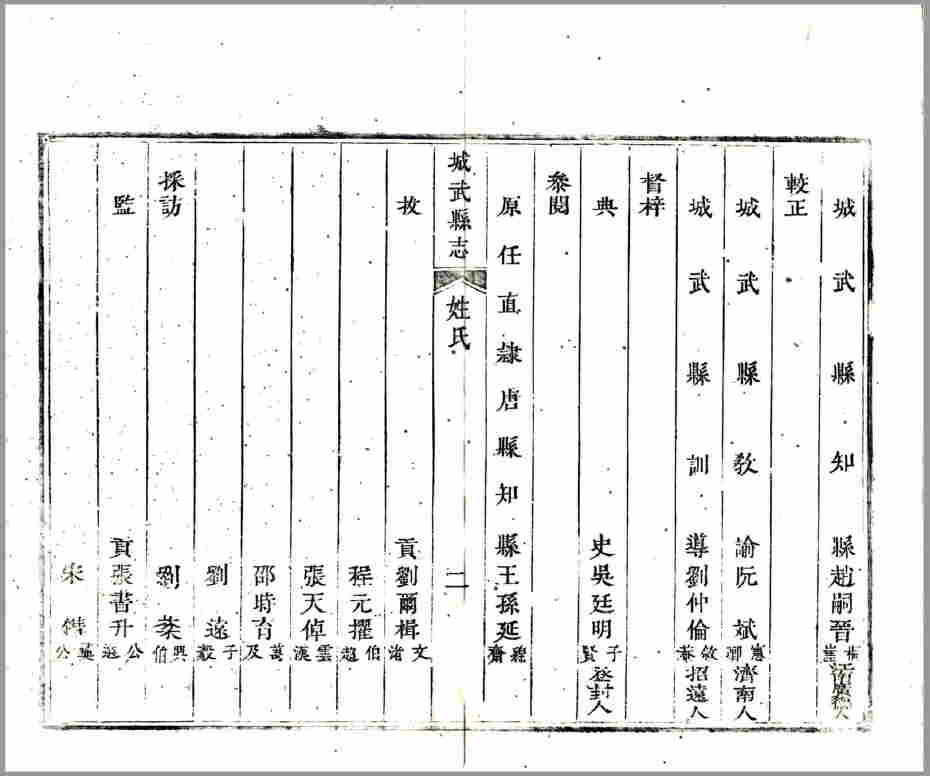 城武縣知縣趙嗣晉
較正
城武縣教諭阮斌 濟南人
城武縣訓導劉仲倫 招遠人
督梓
典史吳廷明 子賢 登封人
參閱
原任直隸唐縣知縣王孫延
城武縣志 姓氏 二
拔貢劉爾楫 文
程元擢 伯超
張天倬 雲漢
邵時育 葛及
劉遠 子
採訪
劉 興伯
監貢張書升 公
宋 公